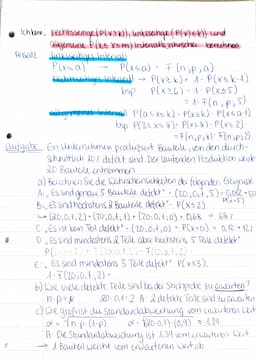 Ich kann rechtsseitige (P(X≥k)), linksseitige (P(X≤k)) und
allgemeine P(k≤X≤m) Intervallwahrscheinl. berechnen
Ansatz linksseitiges Intervall
P(X≤a) → P(X≤a) = F(n,p,a)
rechtsseitiges Intervall → P(X≥k) = 1-P(X≤k-1)
bsp P(X≥6) = 1-P(X≤5)
= 1-F(n,p,5)
Intervall P(a≤X≤k) = P(X≤k)-P(X≤a-1)
bsp P(3≤X≤8) = P(X≤8)-P(X≤2)
=F(n,p,8)-F(n,p,2)
Aufgabe: Ein Unternehmen produziert Bauteile, von den durch-
schnittlich 10% defekt sind. Der laufenden Produktion wurde
20 Bauteile entnommen
a) Berechnen Sie die Wahrscheinlichkeiten der folgenden Ereignisse
A: Es sind genau 5 Bauteile defekt (20;0,1;5)
P(X=5)
B: Es sind höchstens 2 Bauteile defekt P(X≤2)
→ (20;0,1;2) + (20;0,1;1) + (20;0,1;0) = 0,68 → 68%
C: Es ist kein Teil defekt (20;0,1;0) = P(X=0) = 0,12 → 12%
D: Es sind mindestens 2 Teile aber höchstens 5 Teile defekt
E: Es sind mindestens 3 Teile defekt P(X≥3)
1-F(20;0,1;2) =
b) Wie viele defekte Teile sind bei der Stichprobe zu erwarten?
n·p=μ 20·0,1=2 A: 2 defekte Teile sind zu erwarten
c) Wie groß ist die Standardabweichung vom erwarteten Wert
A: Die Standardabweichung ist 1,34 vom erwarteten Wert
→ 1 Bauteil weicht vom erwarteten Wert ab